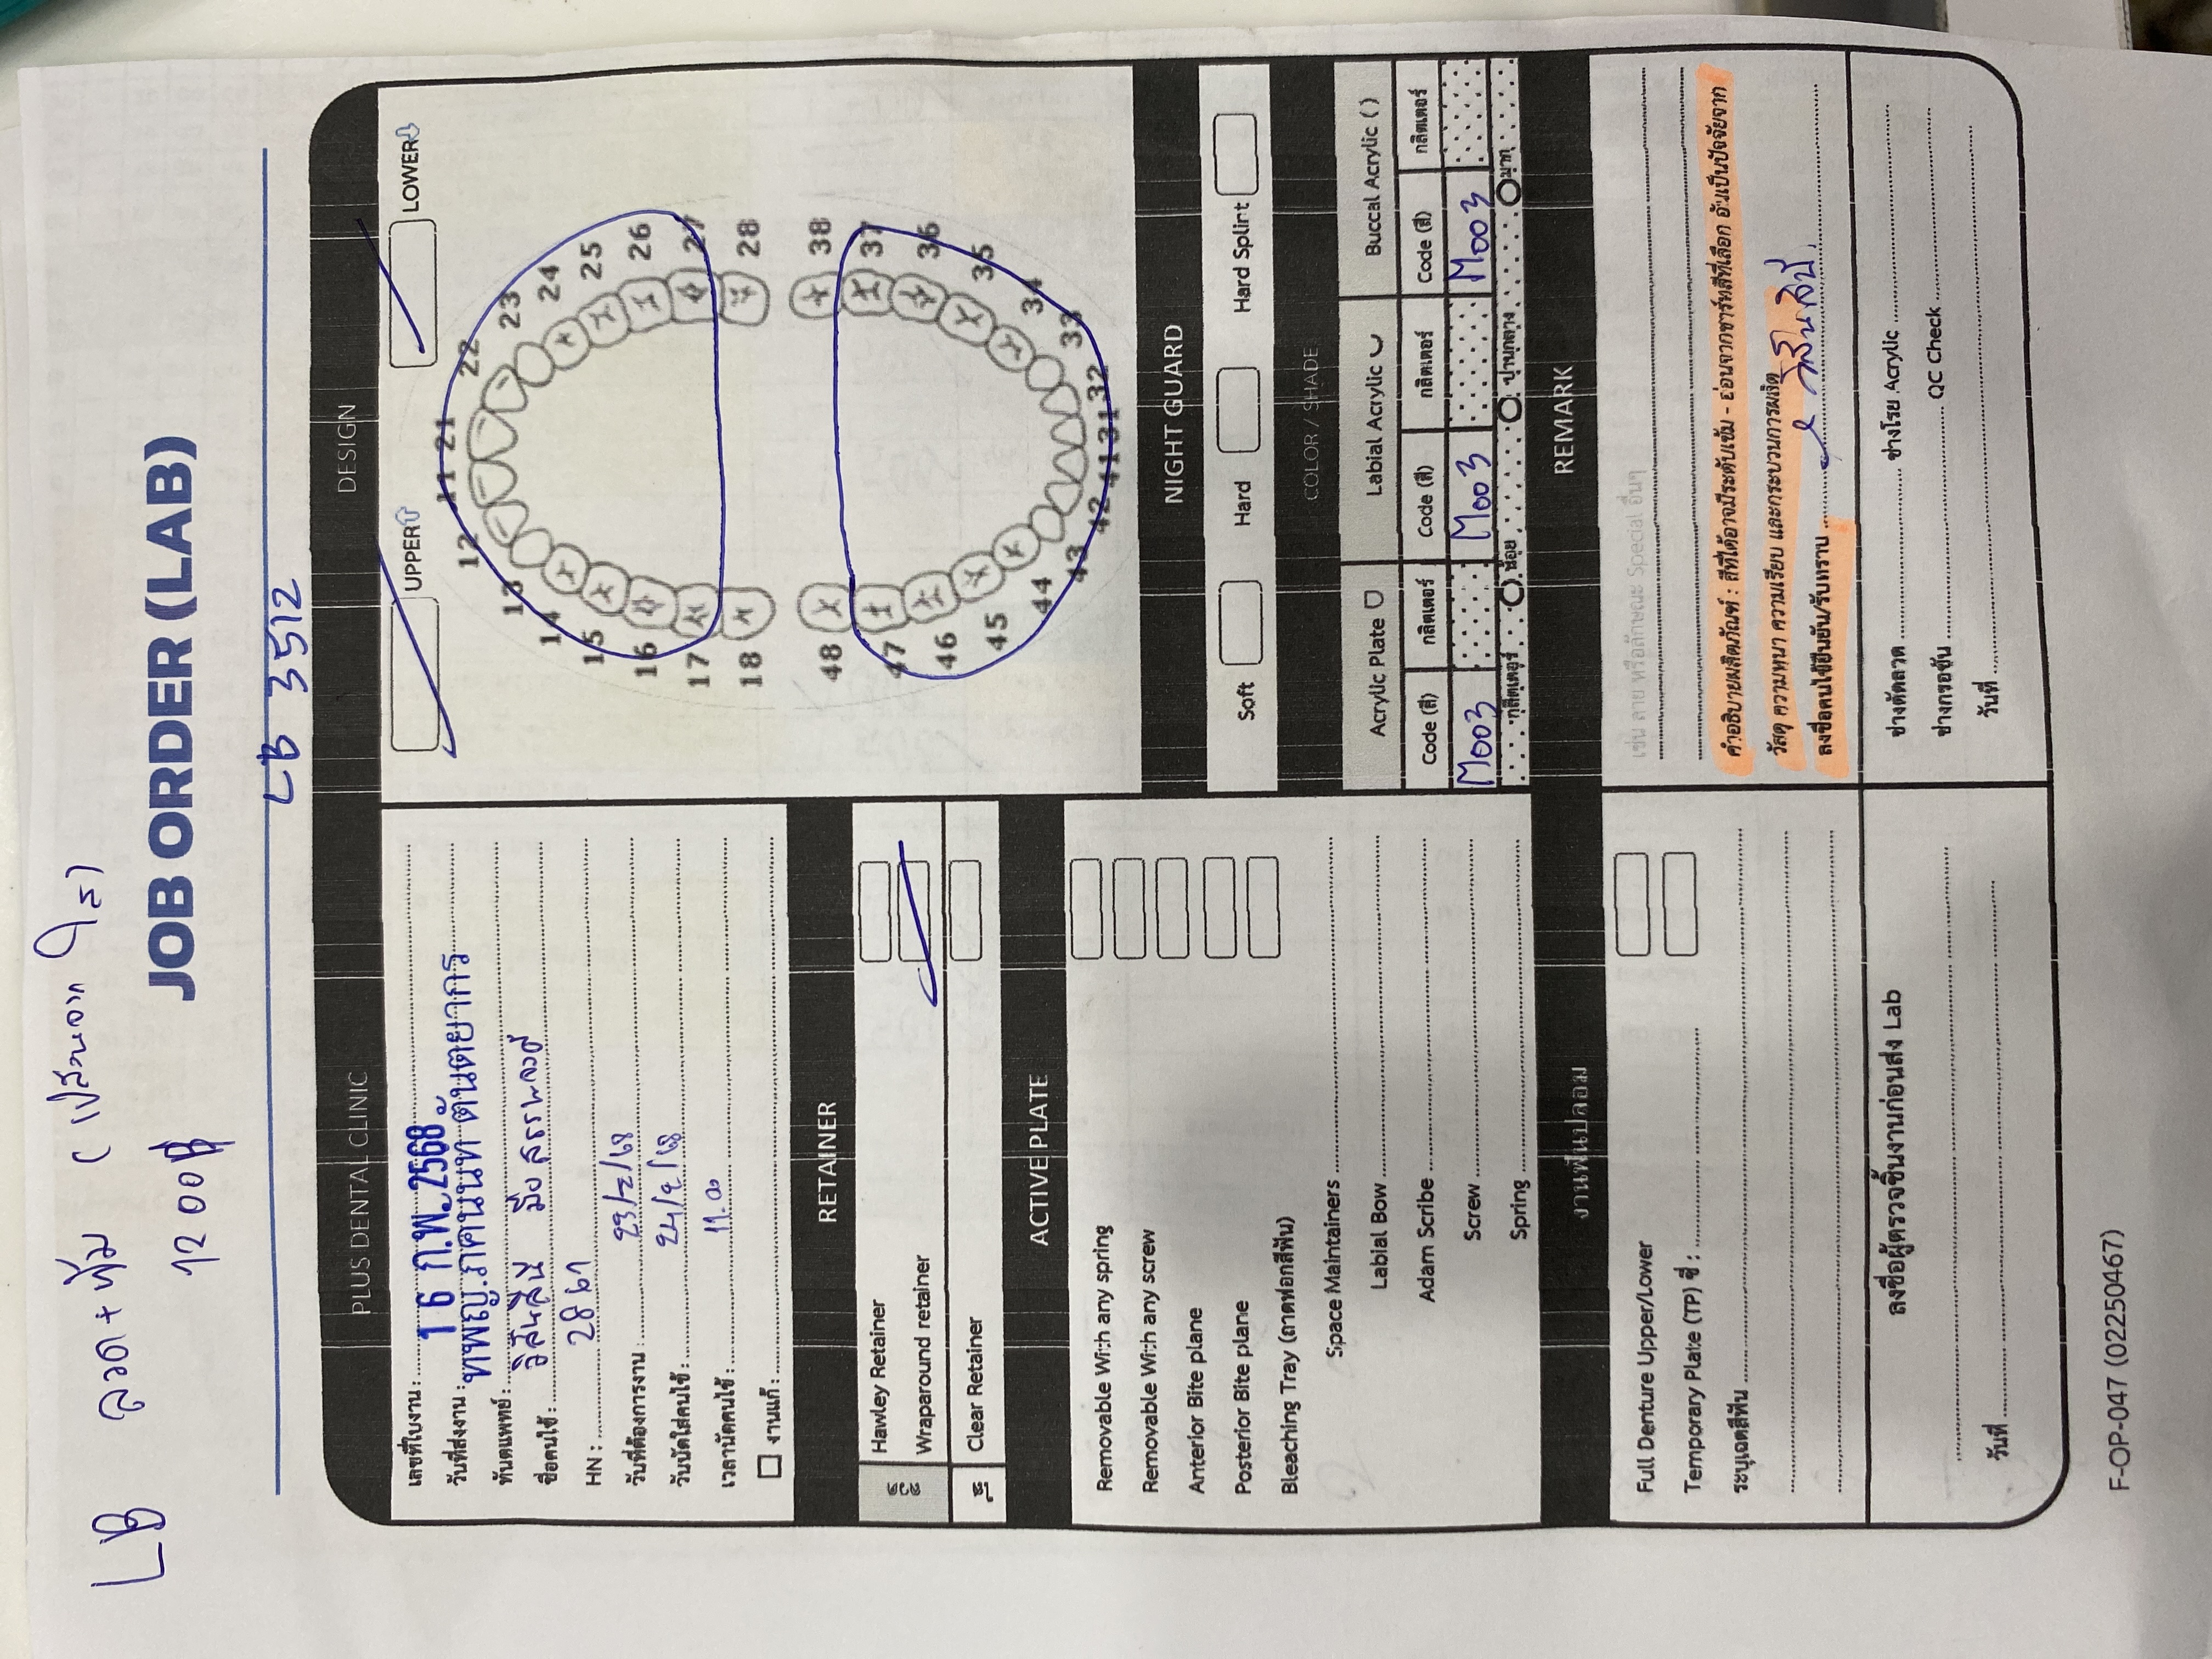 LB ลวด + หุ้ม (เปลี่ยนจาก ใส)
1200฿
JOB ORDER (LAB)
LB 3512
PLUS DENTAL CLINIC
เลขที่ใบงาน :
วันที่ส่งงาน : 16 ก.พ. 2568
ทันตแพทย์ : ทพญ.ภคนันท ตันตยากร
ชื่อคนไข้ : วิสันสินี
HN : 2867
วันที่ต้องการงาน : 23/2/68
วันนัดใส่คนไข้ : 24/2/68
เวลานัดคนไข้ : 11.00
งานแก้ :
RETAINER
ลวด
Hawley Retainer
Wraparound retainer
ใส
Clear Retainer
ACTIVE PLATE
Removable With any spring
Removable With any screw
Anterior Bite plane
Posterior Bite plane
Bleaching Tray (ถาดฟอกสีฟัน)
Space Maintainers
Labial Bow
Adam Scribe
Screw
Spring
งานฟันปลอม
Full Denture Upper/Lower
Temporary Plate (TP) ซี่ :
ระบุเฉดสีฟัน
ลงชื่อผู้ตรวจชิ้นงานก่อนส่ง Lab
วันที่
DESIGN
UPPER LOWER
11 21
12 22
13 23
14 24
15 25
16 26
17 27
18 28
48 38
47 37
46 36
45 35
44 34
43 33
42 41 31 32
NIGHT GUARD
Soft Hard Hard Splint
COLOR / SHADE
Acrylic Plate Labial Acrylic Buccal Acrylic ( )
Code (สี) กลิตเตอร์ Code (สี) กลิตเตอร์ Code (สี) กลิตเตอร์
M003 M003 M003
กลิตเตอร์ น้อย ปานกลาง มาก
REMARK
เช่น ลาย หรือลักษณะ Special อื่นๆ
คำอธิบายผลิตภัณฑ์ : สีที่ได้อาจมีระดับเข้ม - อ่อนจากชาร์ทสีที่เลือก อันเป็นปัจจัยจาก
วัสดุ ความหนา ความเรียบ และกระบวนการผลิต
ลงชื่อคนไข้ยืนยัน/รับทราบ วิสันสินี
ช่างดัดลวด ช่างโรย Acrylic
ช่างกรอขัน QC Check
วันที่
F-OP-047 (02250467)